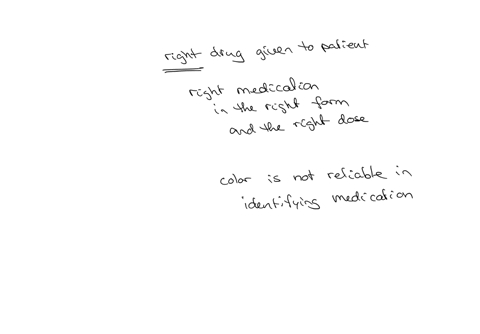 right drug given to patient
right medication
in the right form
and the right dose
color is not reliable in
identifying medication